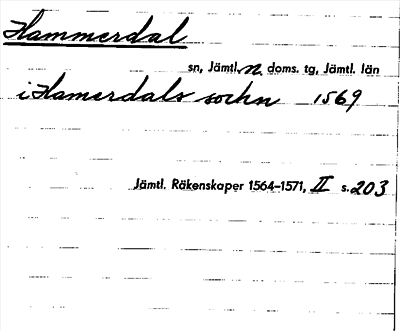 Hammerdal
sn, Jämtl. n. doms. tg, Jämtl. län
i Hamerdals sochn 1569
Jämtl. Räkenskaper 1564-1571, II s. 203